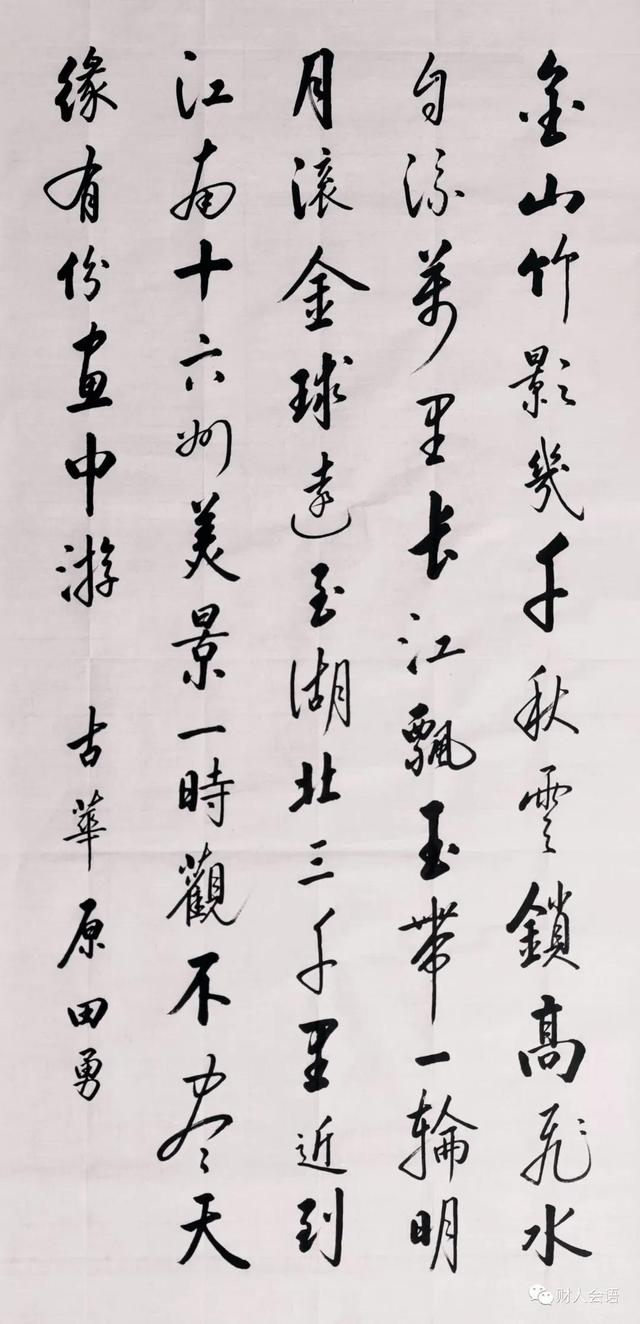 金山竹影幾千秋雲鎖高飛水
自流萬里长江飄玉帶一輪明
月滚金球遠至湖北三千里近到
江南十六州美景一時觀不尽天
緣有份画中游
古華原田勇
财人会语